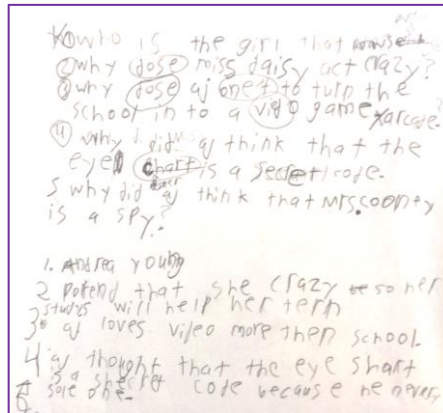 1 who is the girl that
2 why dose miss daisy act crazy?
3 why dose aj onet to turn the
school in to a video game arcade.
4 why did aj think that the
eye chart is a secret code.
5 why did think that Mrs. coonty
is a spy?
1. Andrea young
2 potend that she crazy so her
studys will help her tern
3 aj loves video more then school.
4 aj thought that the eye shart
is a shecret code because he never
sole one.
5